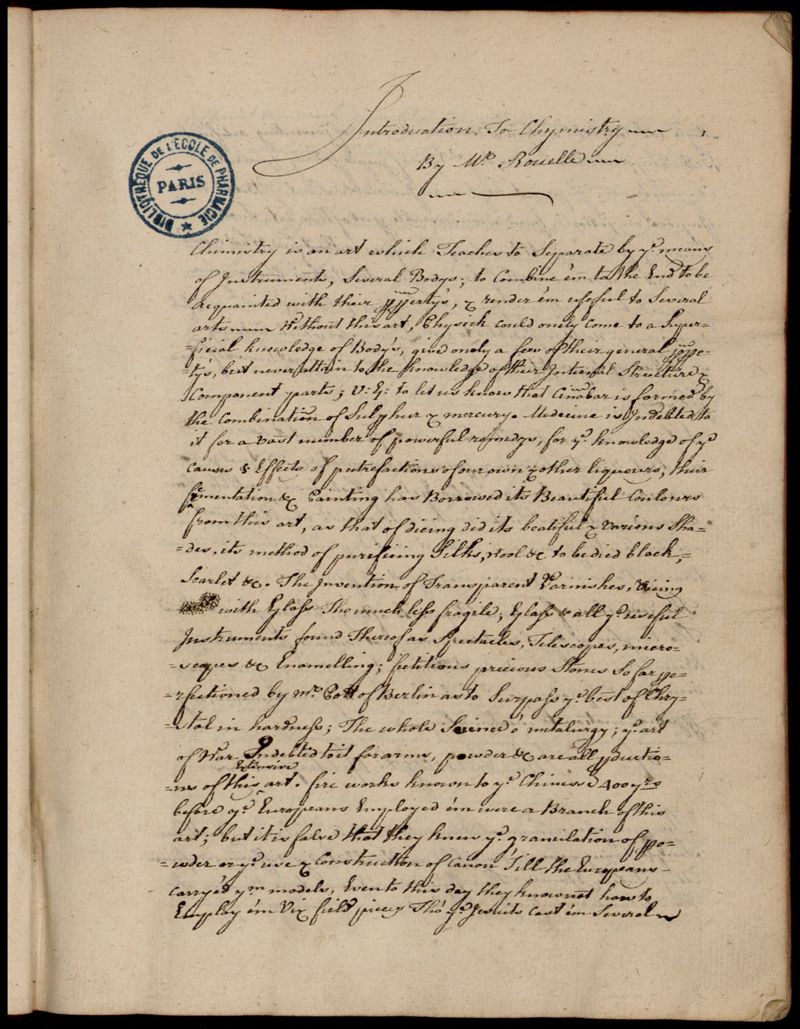 Introduction To Chymistry
By Mr. Rouelle
BIBLIOTHÈQUE DE L'ÉCOLE DE PHARMACIE
PARIS
Chimistry is an art which Teaches to Separate by ye. means
of Instruments, Several Bodys; to Combine êm to the End to be
acquainted with their pperty's, & render êm usefull to Several
arts Without this art, Physick could onely come to a Super-
-ficial knowledge of Body's, give onely a few of their general ppe-
-ty's, but never attain to the knowledge of their Internal Structure &
Component parts; V: G: to let us know that Cinnabar is formed by
the Combination of Sulphur & mercury. Medecine is Indebted to
it for a vast number of powerful remedys, for ye. knowledge of ye
causes & Effects of putrefactions of our own & other liqueurs, their
fermentation &c Painting has Borrowed its Beautiful Coulours
from this art, as that of dieing did its beatiful & various Sha-
-des, its method of purificing Silks, wool &c to be died black,
Scarlet &c. The Invention of Transparent Varnishes,
with Glass Tho much less fragile; Glass & all ye. useful
Instruments found Thereof as Spectacles, Telescopes, micro-
-scopes &c Enamelling; fictitious precious Stones So far pe-
-rfectioned by mr. Pott of Berlin as to Surpass ye. best of Chry-
-stal in hardness; The whole Science o' metalurgy; ye. art
of War Indebted to it for arms, powder &c are all pductio-
-ns of this Extensive art. fire works known to ye. Chinese 400 yrs
before ye. Europeans Employed êm were a Branch of this
art; but it is false that they knew ye. granulation of po-
-wder or ye. use & Construction of Canon Till the Europeans
carry'd ym models, Even to this day they know not how to
Employ êm Viz field pieces Tho' ye. Jesuits cast êm Several